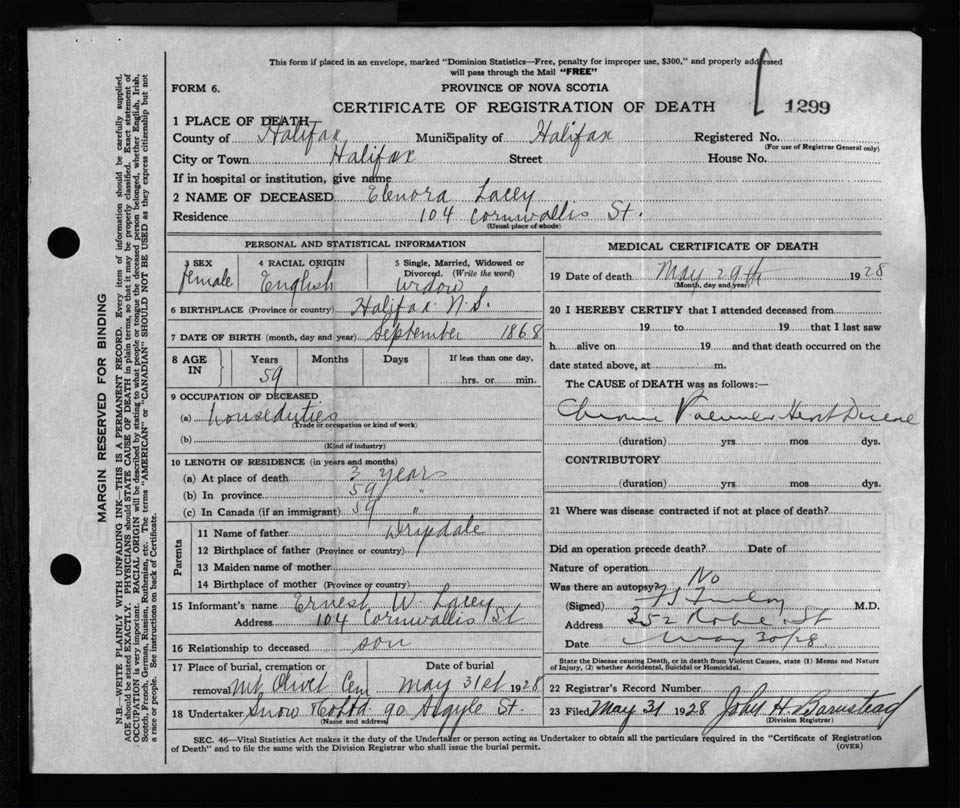 This form if placed in an envelope, marked "Dominion Statistics—Free, penalty for improper use, $300," and properly addressed
will pass through the Mail "FREE"
FORM 6.
PROVINCE OF NOVA SCOTIA
CERTIFICATE OF REGISTRATION OF DEATH
1299
1 PLACE OF DEATH
County of Halifax Municipality of Halifax Registered No.
(For use of Registrar General only)
City or Town Halifax Street House No.
If in hospital or institution, give name
2 NAME OF DECEASED Elenora Lacey
Residence 104 Cornwallis St.
(Usual place of abode)
PERSONAL AND STATISTICAL INFORMATION
3 SEX 4 RACIAL ORIGIN 5 Single, Married, Widowed or
Divorced. (Write the word)
Female English Widow
6 BIRTHPLACE (Province or country) Halifax N.S.
7 DATE OF BIRTH (month, day and year) September 1868
8 AGE IN Years Months Days If less than one day,
59 hrs. or min.
9 OCCUPATION OF DECEASED
(a) houseduties
(Trade or occupation or kind of work)
(b)
(Kind of industry)
10 LENGTH OF RESIDENCE (in years and months)
(a) At place of death 3 years
(b) In province 59 "
(c) In Canada (if an immigrant) 59 "
Parents
11 Name of father Drysdale
12 Birthplace of father (Province or country)
13 Maiden name of mother
14 Birthplace of mother (Province or country)
15 Informant's name Ernest W. Lacey
Address 104 Cornwallis St
16 Relationship to deceased son
17 Place of burial, cremation or Date of burial
removal Mt Olivet Cem May 31st 1928
18 Undertaker Snow Co Ltd 90 Argyle St.
(Name and address)
MEDICAL CERTIFICATE OF DEATH
19 Date of death May 29th 1928
(Month, day and year)
20 I HEREBY CERTIFY that I attended deceased from
19 to 19 that I last saw
h alive on 19 and that death occurred on the
date stated above, at m.
The CAUSE of DEATH was as follows:—
Chronic Heart Disease
(duration) yrs mos dys.
CONTRIBUTORY
(duration) yrs mos dys.
21 Where was disease contracted if not at place of death?
Did an operation precede death? Date of
Nature of operation
Was there an autopsy? No
(Signed) M.D.
Address 352 Robie St
Date May 30/28
State the Disease causing Death, or in death from Violent Causes, state (1) Means and Nature
of Injury, (2) whether Accidental, Suicidal or Homicidal.
22 Registrar's Record Number
23 Filed May 31 1928 John H Barnstead
(Division Registrar)
SEC. 46—Vital Statistics Act makes it the duty of the Undertaker or person acting as Undertaker to obtain all the particulars required in the "Certificate of Registration
of Death" and to file the same with the Division Registrar who shall issue the burial permit.
(OVER)
MARGIN RESERVED FOR BINDING
N.B.—WRITE PLAINLY WITH UNFADING INK—THIS IS A PERMANENT RECORD. Every item of information should be carefully supplied.
AGE should be stated EXACTLY. PHYSICIANS should STATE CAUSE OF DEATH in plain terms, so that it may be properly classified. Exact statement of
OCCUPATION is very important. RACIAL ORIGIN will be described by stating to what people or tongue the deceased person belonged, whether English, Irish,
Scotch, French, German, Russian, Ruthenian, etc. The terms "AMERICAN" or "CANADIAN" SHOULD NOT BE USED as they express citizenship but not
a race or people. See instructions on back of Certificate.